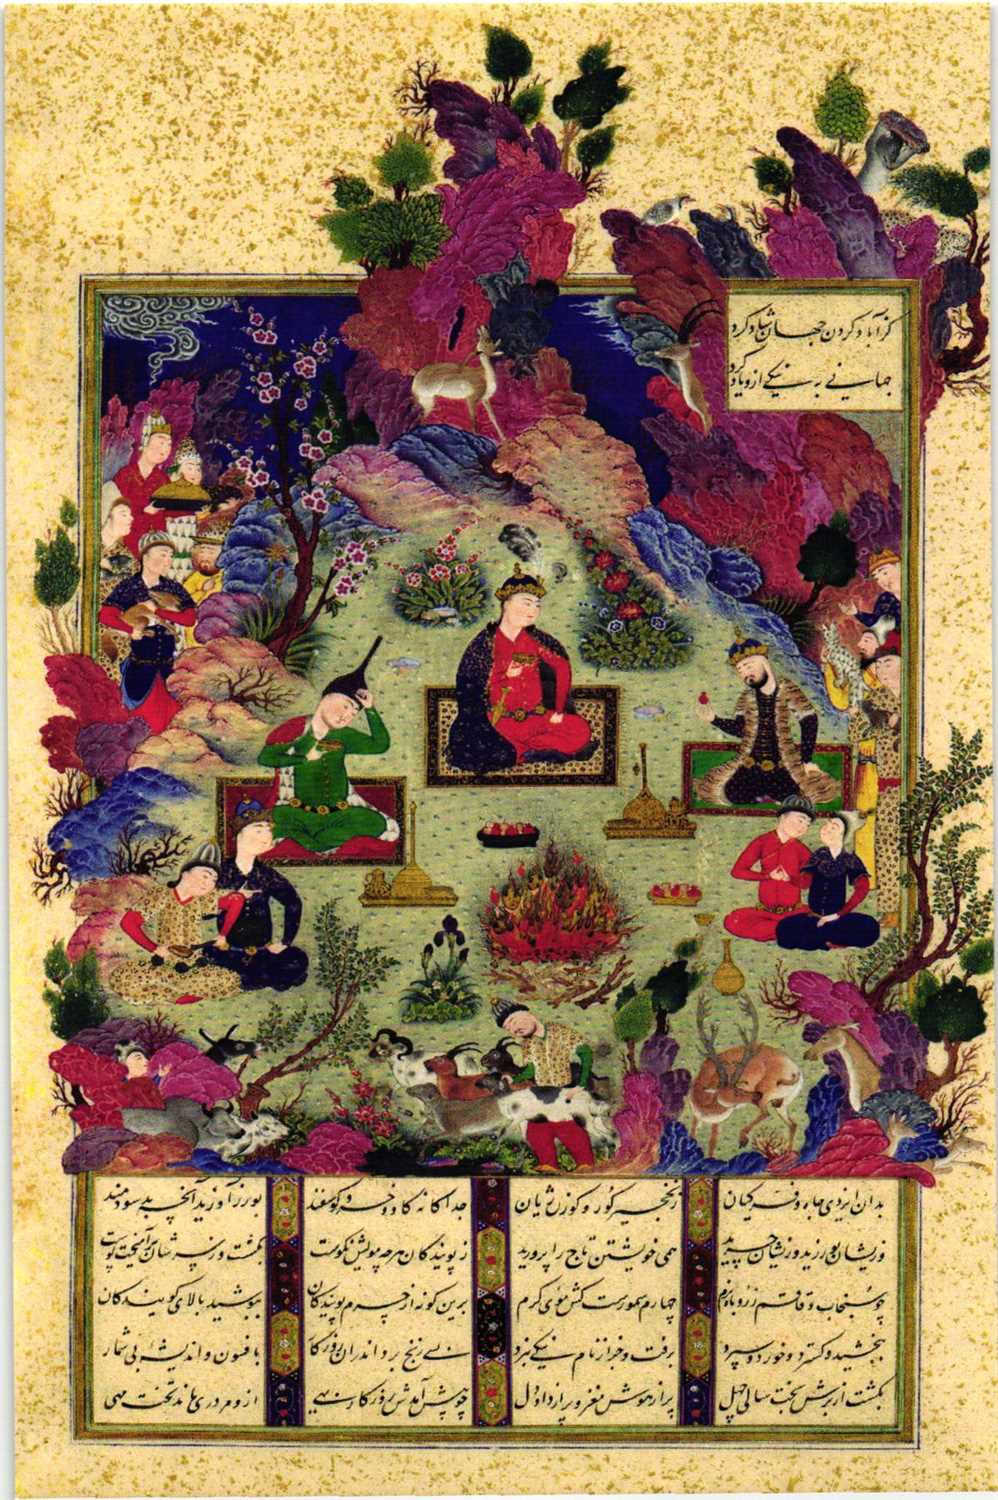 کز آباد کردن جهان شاد کرد
جهانی به نیکی ازو یاد کرد
بدان ایزدی جاه و فر کیان ز نخچیر گور و گوزن ژیان جداگانه گاو و خر و گوسفند بورز آورید آنچه بد سودمند
وزیشان بورزید وزیشان چرید همی خویشتن تاج را پرورید ز پویندگان هرچه مویش نکوست بکشت و ز سرشان برآمیخت پوست
چو سنجاب و قاقم ز روباه نرم چهارم سمورست کش موی گرم برین گونه از چرم پویندگان بپوشید بالای گویندگان
ببخشید و گسترد و خورد و سپرد برفت و جز از نام نیکی نبرد بسی رنج برد اندران روزگار بافسون و اندیشه بی شمار
بگشت از برش بخت سالی چهل پر از هوش مغز و پر از داد دل چو پیش آمدش روزگار بهی ازو مردری ماند تخت مهی